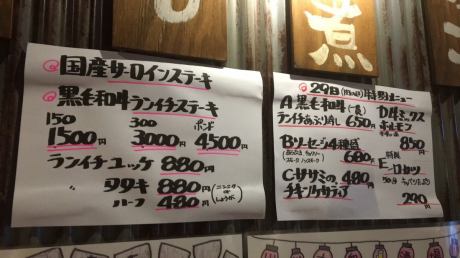 煮
国産サーロインステーキ
黒毛和牛ランイチステーキ
150 300 ポンド
1500円 3000円 4500円
ランイチユッケ 880円
タタキ 880円
ハーフ 480円
ニンニク or しょうが
29日(肉の日)特別メニュー
A 黒毛和牛(一貫)
ランイチあぶり寿し 650円
Bソーセージ4種盛
680円
C.ササミの 480円
チキンケサディア
D.4ミックス
ホルモン
850円
E.
290円